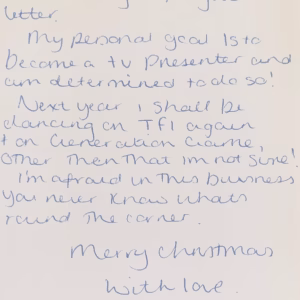 letter.
My personal goal Is to
become a tv Presenter and
am determined to do so!
Next year i shall be
dancing on TFI again
+ on Generation Game,
Other Then That im not Sure!
I'm afraid in This business
you never know whats
round The corner.
Merry christmas
with love